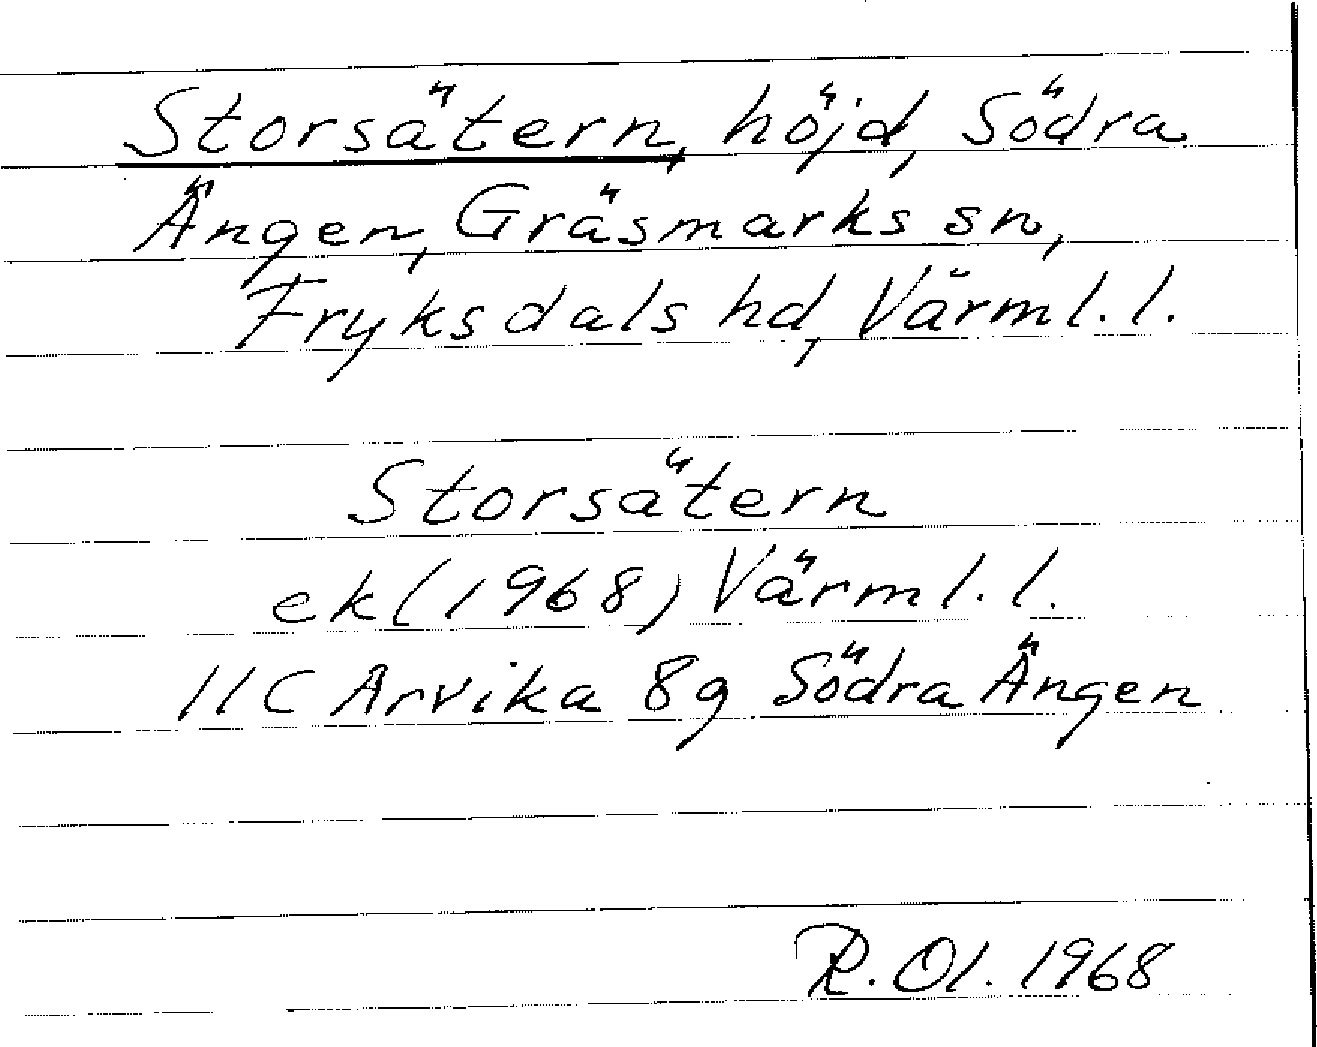 Storsätern, höjd, Södra
Ängen, Gräsmarks sn,
Fryksdals hd, Värml. l.
Storsätern
ek (1968) Värml. l.
11C Arvika 8g Södra Ängen
R. Ol. 1968